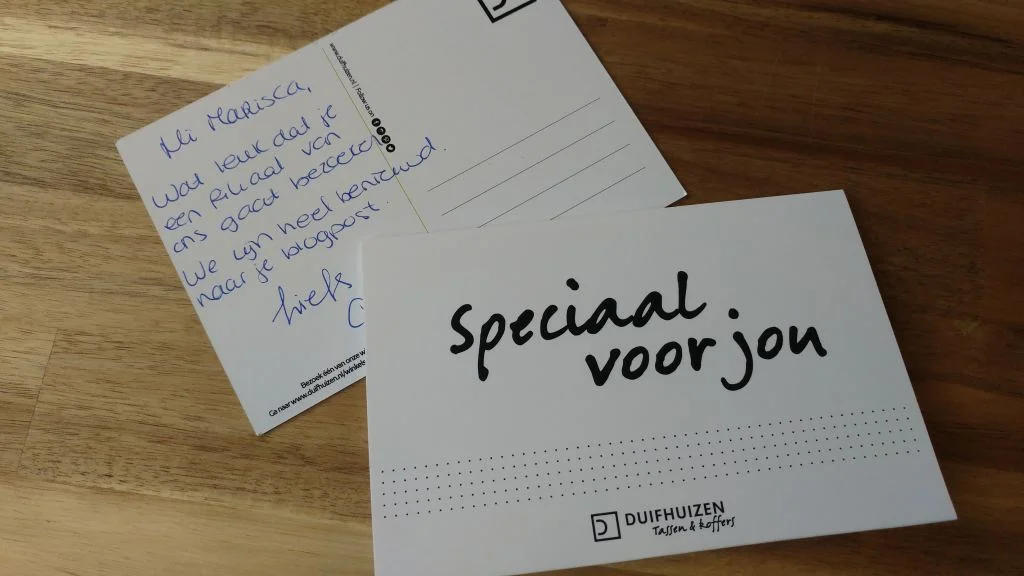 Hi Marisca,
Wat leuk dat je
een filiaal van
ons gaat bezoeken.
We zijn heel benieuwd
naar je blogpost.
liefs
www.duifhuizen.nl | Follow us on
Bezoek één van onze w
Ga naar www.duifhuizen.nl/winkels
Speciaal
voor jou
DUIFHUIZEN
Tassen & koffers